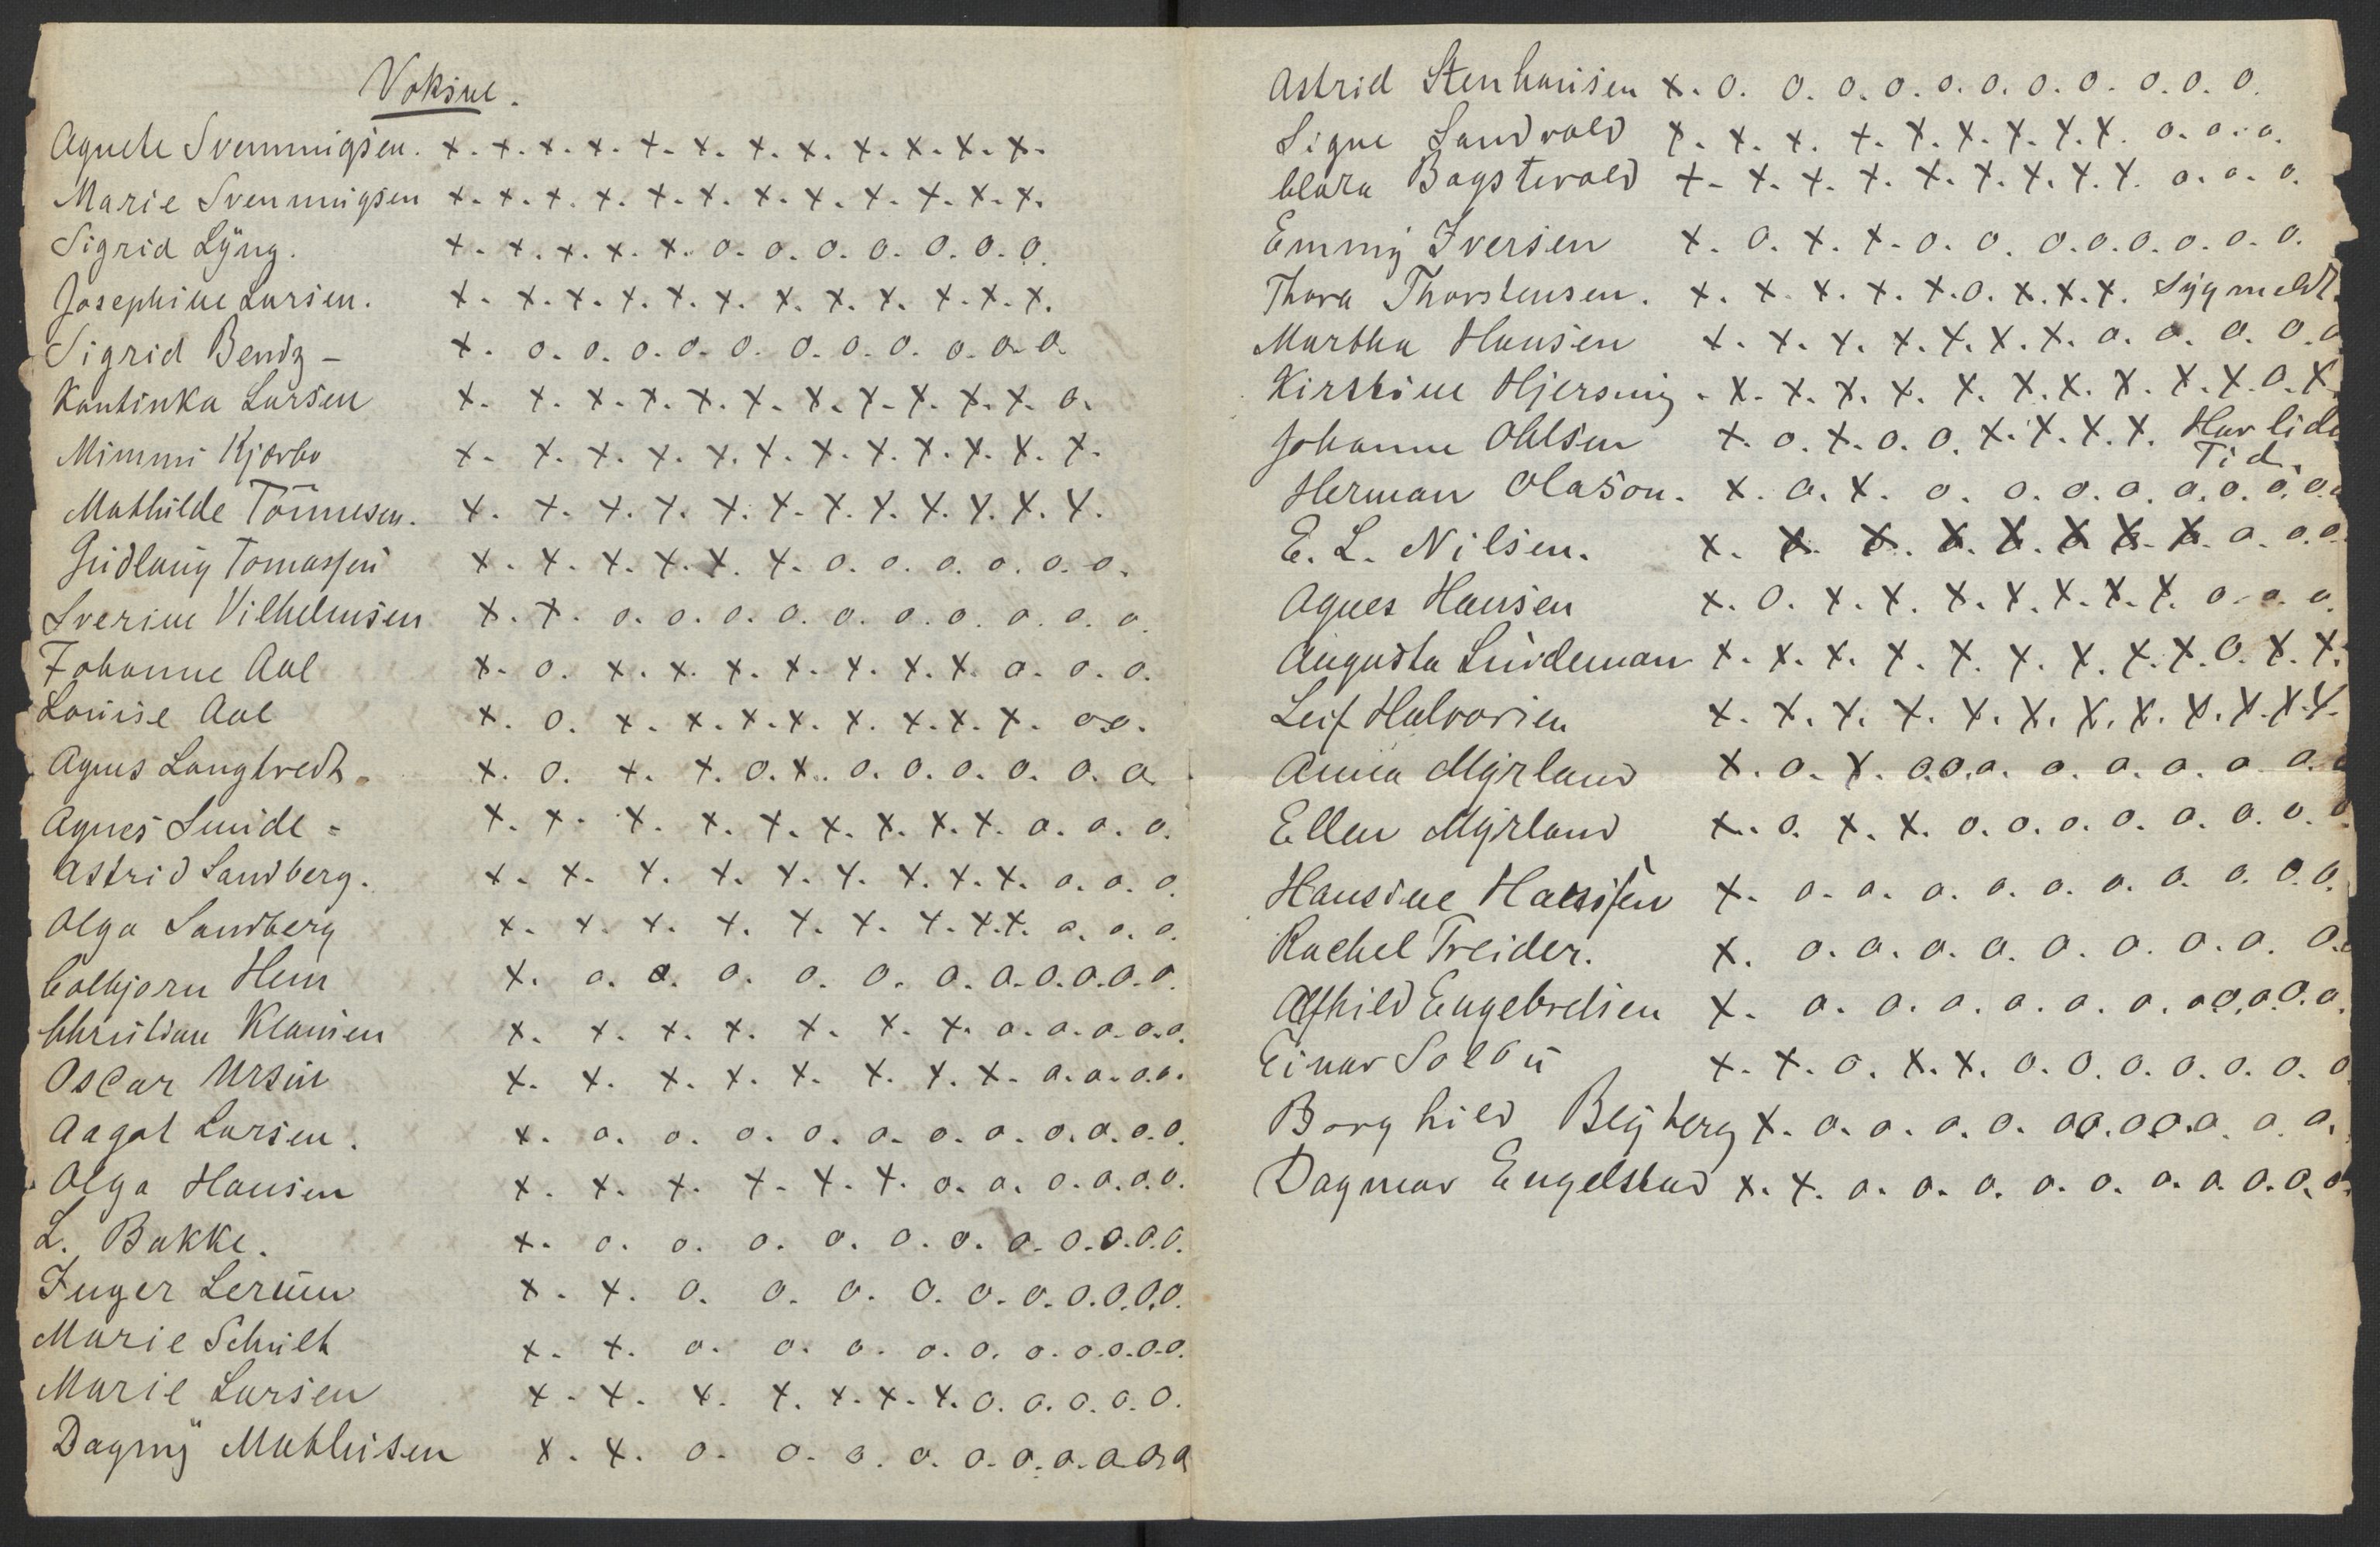 Voksne.
Agnete Svenningsen. x. x. x. x. x. x. x. x. x. x. x. x.
Marie Svenningsen x. x. x. x. x. x. x. x. x. x. x. x.
Sigrid Lÿng. x. x. x. x. x. o. o. o. o. o. o. o.
Josephine Larsen. x. x. x. x. x. x. x. x. x. x. x. x.
Sigrid Bendz - x. o. o. o. o. o. o. o. o. o. o. o.
Kantinka Larsen x. x. x. x. x. x. x. x. x. x. x. o.
Mimmi Kjærbo x. x. x. x. x. x. x. x. x. x. x. x.
Mathilde Tönnesen. x. x. x. x. x. x. x. x. x. x. x. x.
Gudlaug Tomassen x. x. x. x. x. x. o. o. o. o. o. o.
Sverine Vilhelmsen x. x. o. o. o. o. o. o. o. o. o. o.
Johanne Aal x. o. x. x. x. x. x. x. x. o. o. o.
Louise Aal x. o. x. x. x. x. x. x. x. x. o o.
Agnes Langtvedt. x. o. x. x. o. x. o. o. o. o. o. o
Agnes Smide - x. x. x. x. x. x. x. x. x. o. o. o.
Astrid Sandberg. x. x. x. x. x. x. x. x. x. o. o. o
Olga Sandberg x. x. x. x. x. x. x. x. x. o. o. o.
Colbjørn Hem x. o. o. o. o. o. o. o. o. o. o. o.
Christian Klausen x. x. x. x. x. x. x. o. o. o. o. o.
Oscar Ursin x. x. x. x. x. x. x. x. o. o. o. o.
Aagot Larsen. x. o. o. o. o. o. o. o. o. o. o. o.
Olga Hansen x. x. x. x. x. x. o. o. o. o. o. o.
L. Bakke. x. o. o. o. o. o. o. o. o. o. o. o.
Inger Lerum x. x. o. o. o. o. o. o. o. o. o. o.
Marie Schult x. x. o. o. o. o. o. o. o. o. o. o.
Marie Larsen x. x. x. x. x. x. x. o. o. o. o. o.
Dagnÿ Mathisen x. x. o. o. o. o. o. o. o. o o. o
Astrid Stenhausen x. o. o. o. o. o. o. o. o. o. o. o.
Signe Sandvold x. x. x. x. x. x. x. x. x. o. o. o.
Clara Bagstevold x. x. x. x. x. x. x. x. x. o. o. o.
Emmÿ Iversen x. o. x. x. o. o. o. o. o. o. o. o.
Thora Thorstensen. x. x. x. x. x. o. x. x. x. Sygmeldt.
Martha Hansen x. x. x. x. x. x. x. o. o. o. o. o
Kirstine Hjersing. x. x. x. x. x. x. x. x. x. x. o. x.
Johanne Ohlsen x. o. x. o. o. x. x. x. x. Har lide
Tid.
Herman Olason. x. o. x. o. o. o. o. o. o. o. o. o
E. L. Nilsen. x. x. x. x. x. x. x. x. o. o. o.
Agnes Hansen x. o. x. x. x. x. x. x. x. o. o. o.
Augusta Lindeman x. x. x. x. x. x. x. x. x. o. x. x.
Leif Halvorsen x. x. x. x. x. x. x. x. x. x. x. x.
Anna Mÿrland x. o. x. o. o. o. o. o. o. o. o. o
Ellen Mÿrland x. o. x. x. o. o. o. o. o. o. o. o
Hansine Hansen x. o. o. o. o. o. o. o. o. o. o.
Rachel Treider. x. o. o. o. o. o. o. o. o. o. o
Alfhild Engebretsen x. o. o. o. o. o. o. o o. o o. o.
Einar Solbu x. x. o. x. x. o. o. o. o. o. o. o
Borghild Blÿberg x. o. o. o. o. o o. o o. o. o. o.
Dagmar Engelstad x. x. o. o. o. o. o. o. o. o. o. o.